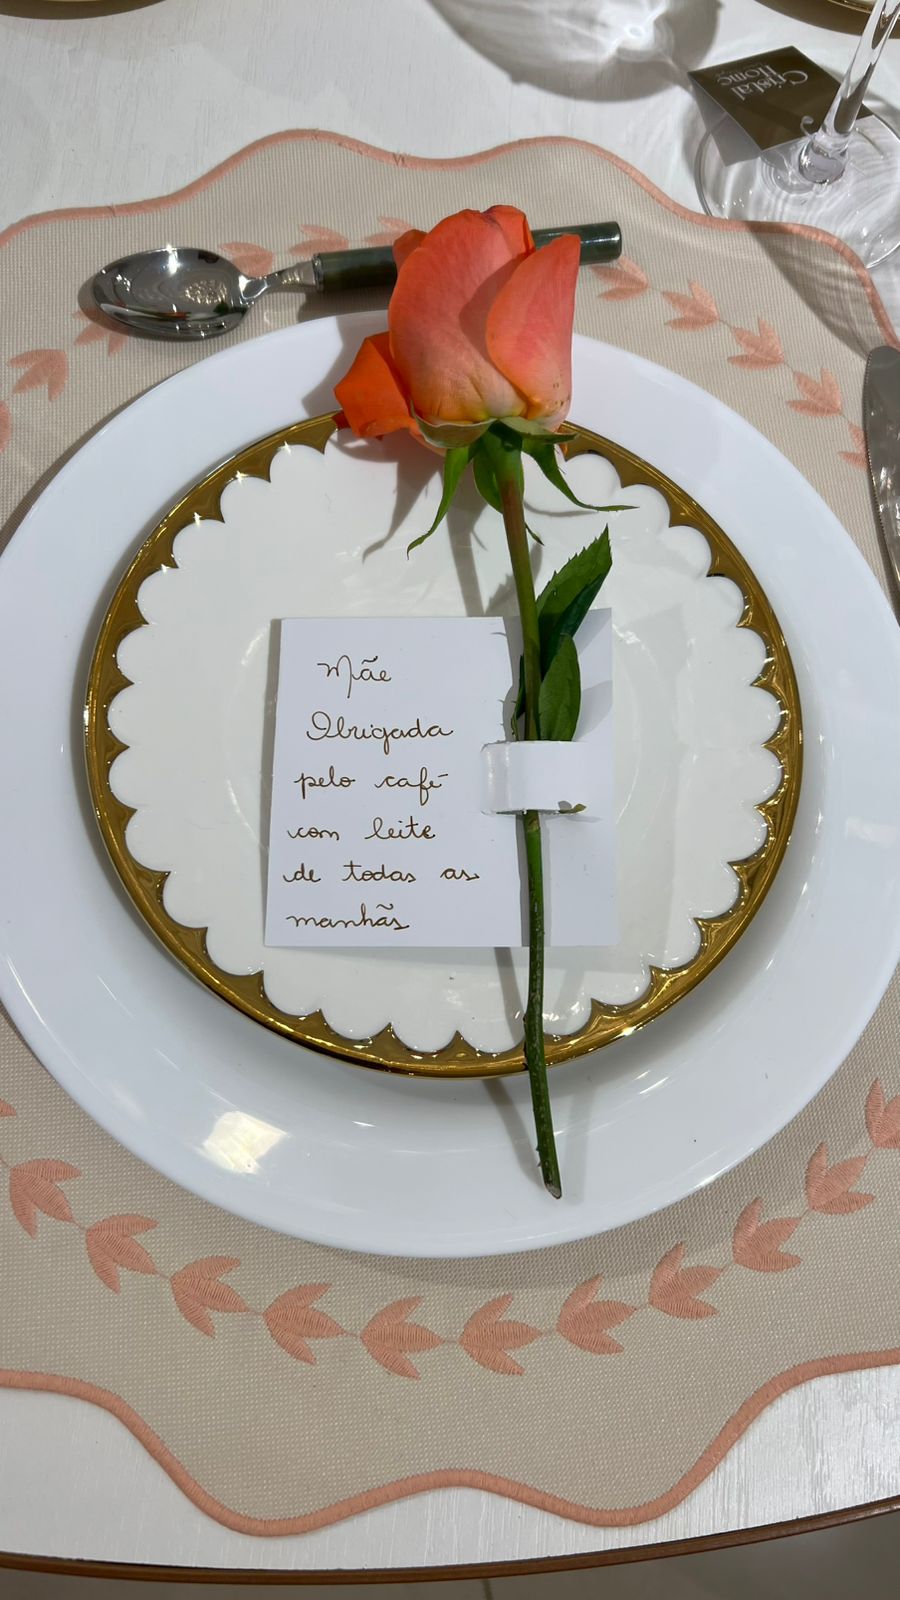 Cristal
Home
Mãe
Obrigada
pelo café
com leite
de todas as
manhãs